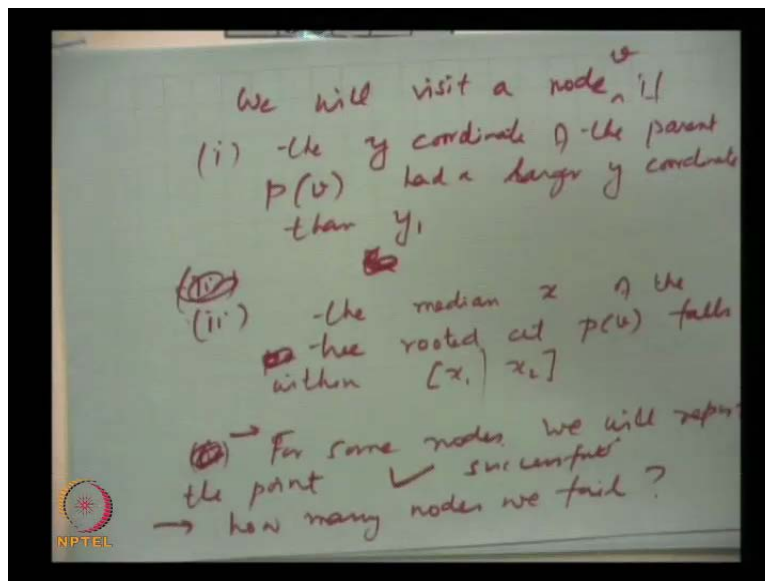 We will visit a node v if
(i) the y coordinate of the parent
p(v) had a larger y coordinate
than y₁
(ii) the median x of the
tree rooted at p(v) falls
within [x₁, x₂]
→ For some nodes we will report
the point ✓ successful
→ how many nodes we fail?
NPTEL